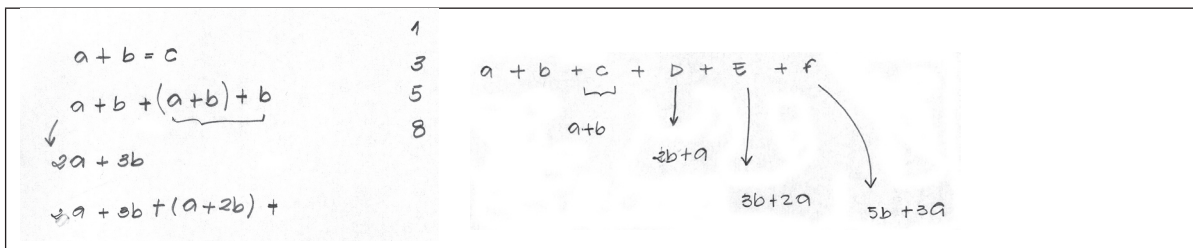 a + b = c
a + b + (a+b) + b
2a + 3b
2a + 3b + (a+2b) +
1
3
5
8
a + b + c + D + E + f
a+b
2b+a
3b+2a
5b+3a